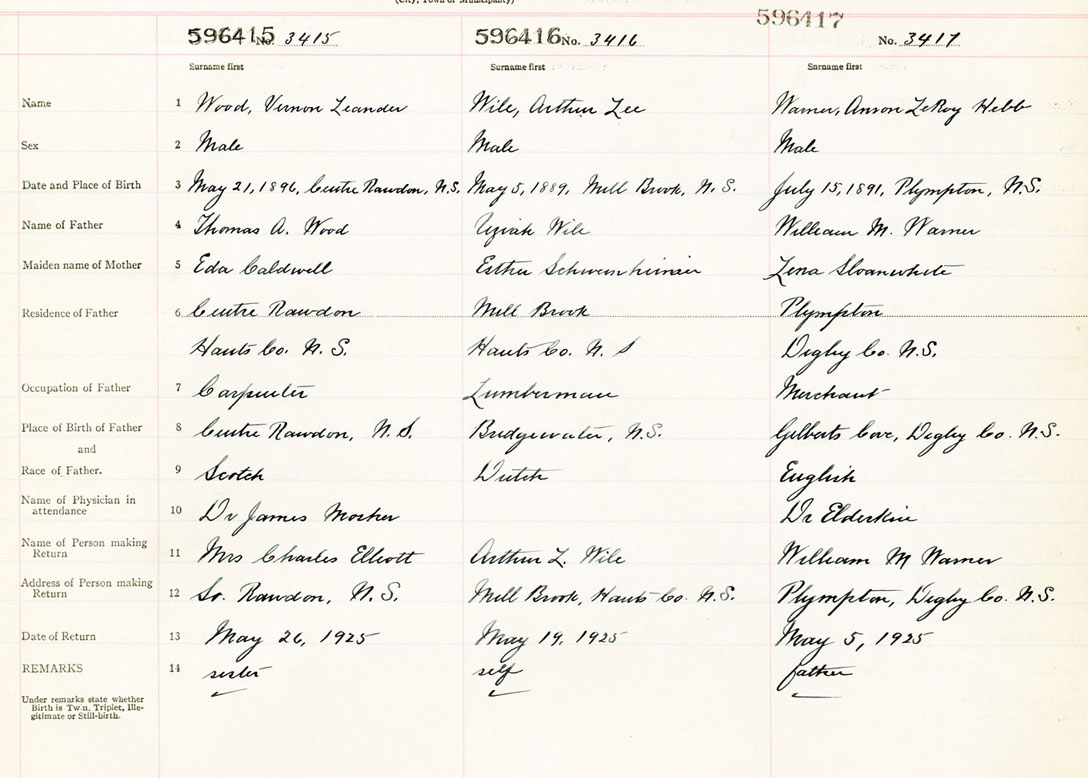 (City, Town or Municipality)
596415 No. 3415 596416 No. 3416 596417 No. 3417
Surname first Surname first Surname first
Name 1 Wood, Vernon Leander Wile, Arthur Lee Warner, Anson LeRoy Hebb
Sex 2 Male Male Male
Date and Place of Birth 3 May 21, 1896, Centre Rawdon, N.S. May 5, 1889, Mill Brook, N.S. July 15, 1891, Plympton, N.S.
Name of Father 4 Thomas A. Wood Uziah Wile William M. Warner
Maiden name of Mother 5 Eda Caldwell Esther Lena Sloanwhite
Residence of Father 6 Centre Rawdon Mill Brook Plympton
Hants Co. N.S. Hants Co. N.S Digby Co. N.S.
Occupation of Father 7 Carpenter Lumberman Merchant
Place of Birth of Father 8 Centre Rawdon, N.S. Bridgewater, N.S. Gilberts Cove, Digby Co. N.S.
and
Race of Father. 9 Scotch Dutch English
Name of Physician in
attendance 10 Dr James Mosher Dr Elderkin
Name of Person making
Return 11 Mrs Charles Elliott Arthur L. Wile William M Warner
Address of Person making
Return 12 So. Rawdon, N.S. Mill Brook, Hants Co. N.S. Plympton, Digby Co. N.S.
Date of Return 13 May 26, 1925 May 19, 1925 May 5, 1925
REMARKS 14 sister self father
Under remarks state whether
Birth is Twin, Triplet, Ille-
gitimate or Still-birth.